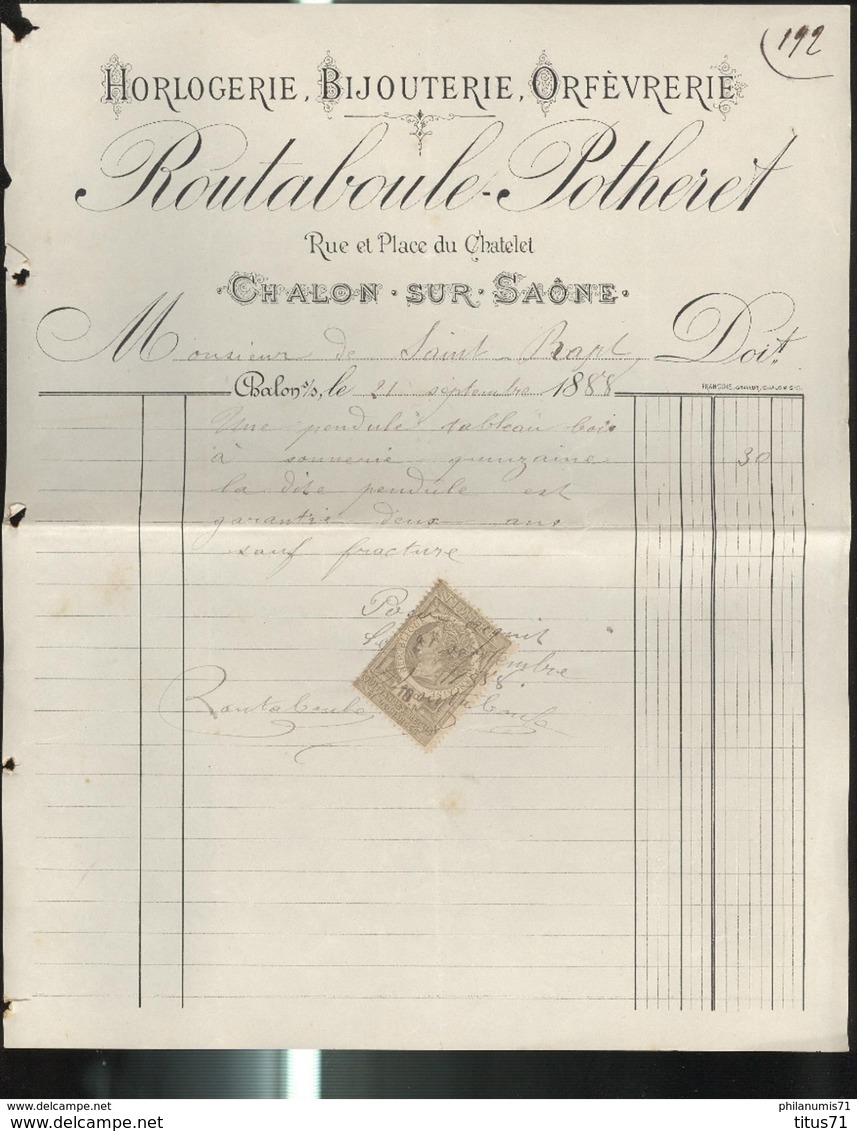 192
HORLOGERIE, BIJOUTERIE, ORFÈVRERIE
Routaboule-Potheret
Rue et Place du Chatelet
CHALON · SUR · SAÔNE
Monsieur de Saint-Rapt, Doit
Chalon s/s, le 21 septembre 1888
Une pendule tableau bois
à sonnerie quinzaine 30
la dite pendule est
garantie deux ans
sauf fracture
Pour acquit
1888
Routaboule
philanumis71
www.delcampe.net titus71